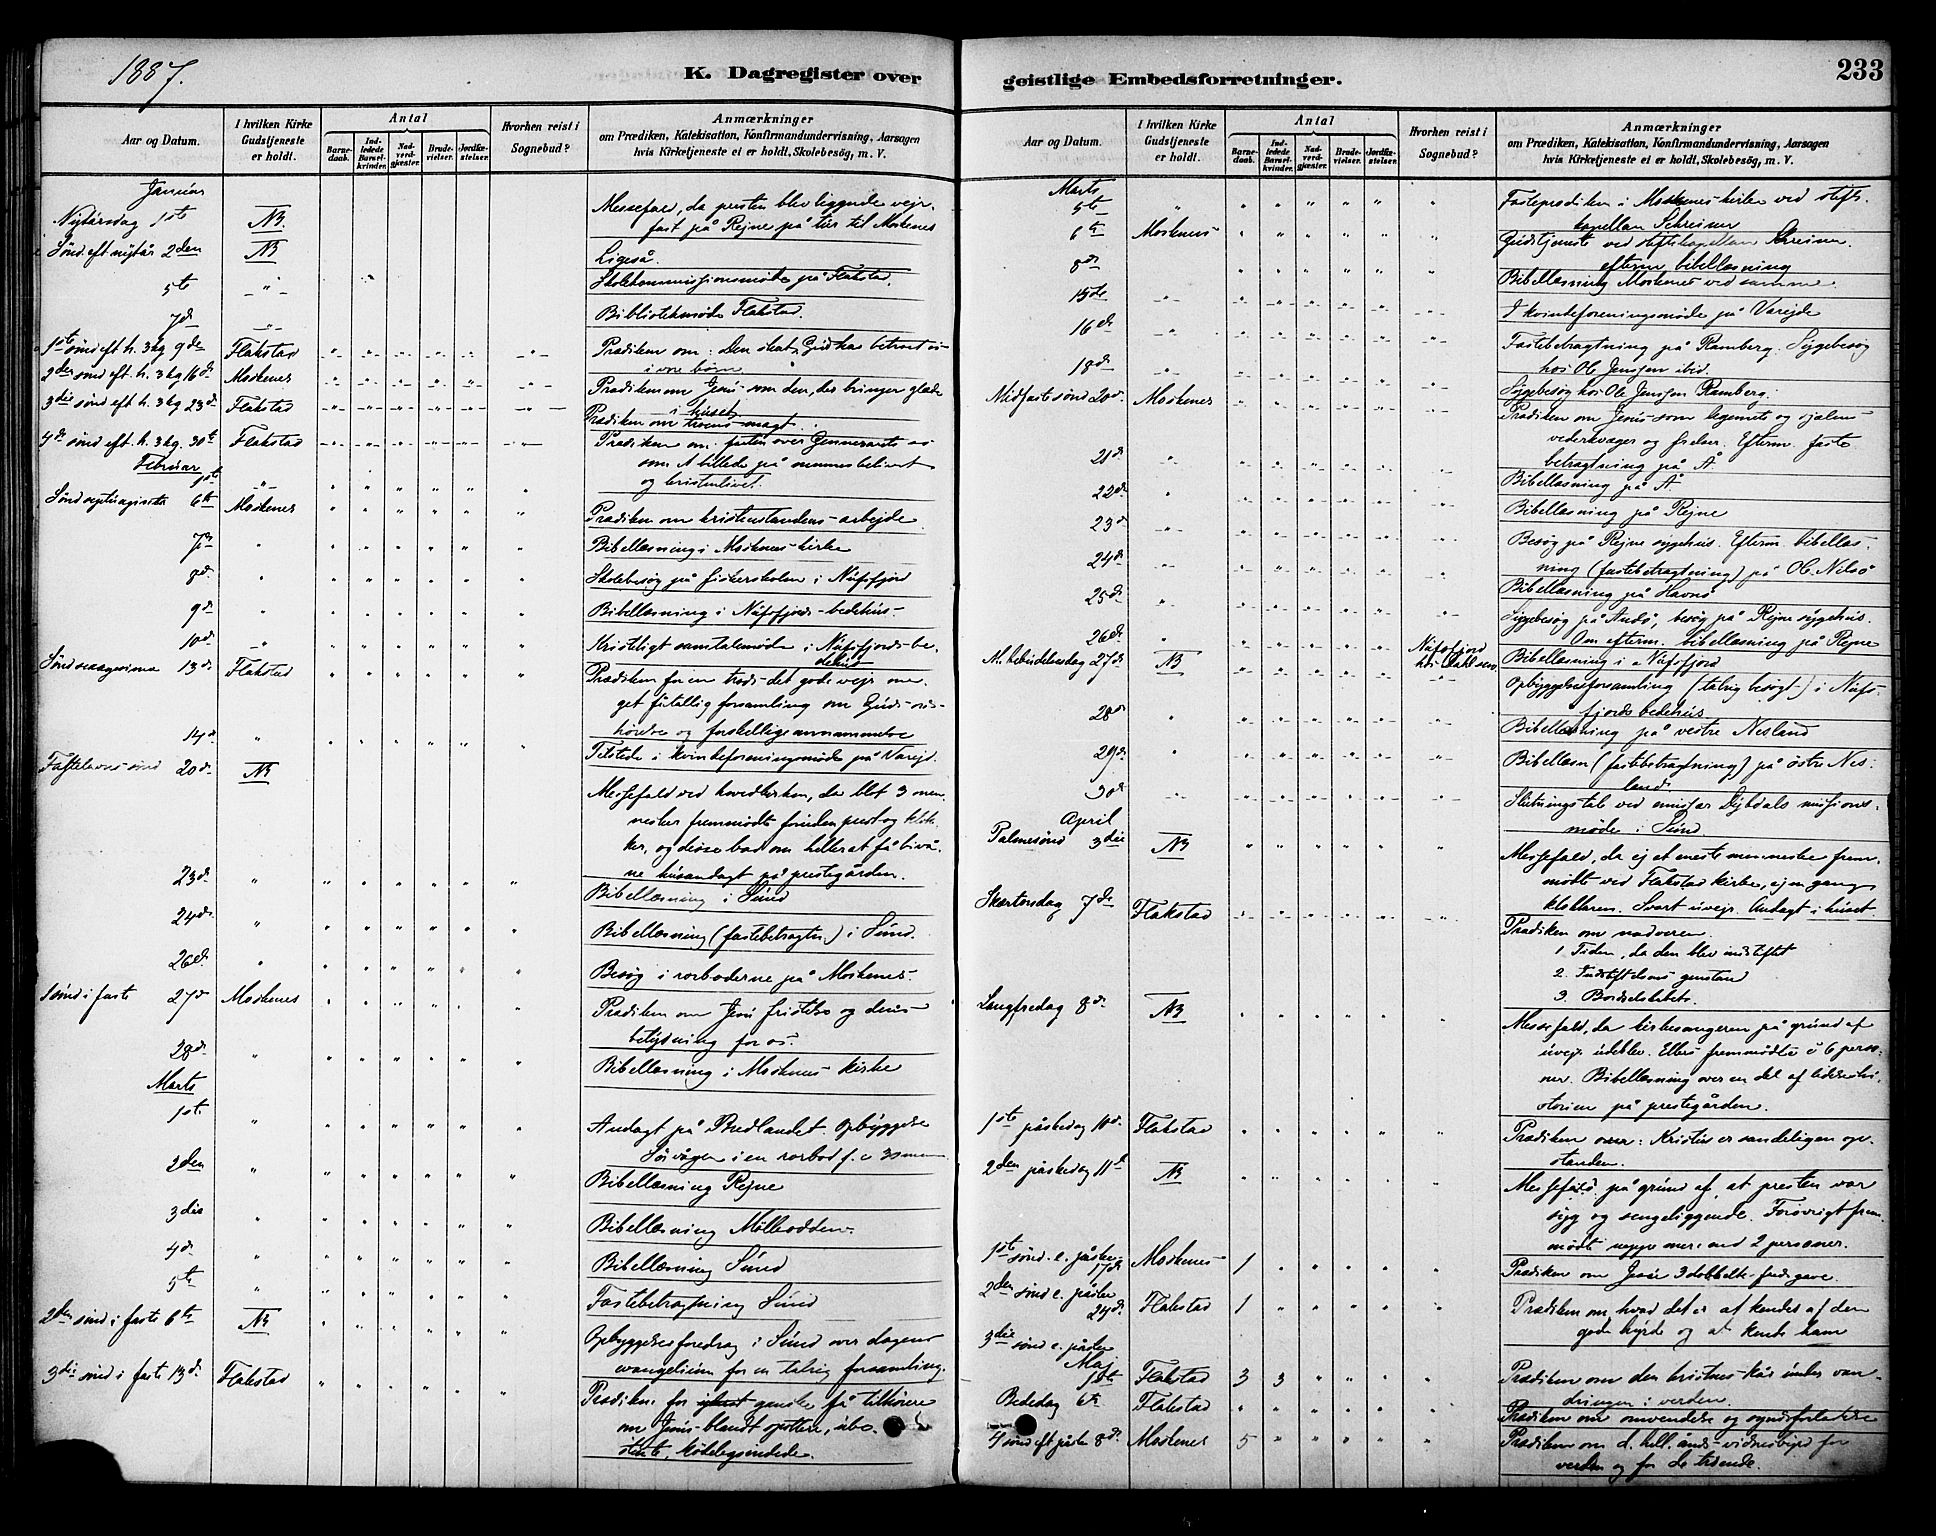 1887.
K. Dagregister over
Aar og Datum.
I hvilken Kirke
Gudstjeneste
er holdt.
Antal
Barne-
daab.
Ind-
ledede
Barsel-
kvinder.
Nad-
verd-
gjæster.
Brude-
vielser.
Jordfæ-
stelser.
Hvorhen reist i
Sognebud?
Anmærkninger
om Prædiken, Katekisation, Konfirmandundervisning, Aarsagen
hvis Kirketjeneste ei er holdt, Skolebesög, m. V.
Januar
Nytårsdag 1ste NB. Messefald, da presten blev liggende vejr-
fast på Rejne på tur til Moskenes
Sønd eft nytår 2den NB Ligeså.
5te Skolekommissionsmøde på Flakstad.
7d Biblioteksmøde Flakstad.
1ste sønd eft. h. 3 kg 9de Flakstad Prædiken om: Den skat, Gud har betroet os
i vore børn.
2den sønd eft. h. 3 kg 16d Moskenes Prædiken om Jesus som den, der bringer glæde
i huset
3die sønd eft h. 3 kg 23d Flakstad Prædiken om troens magt.
4d sønd eft. h. 3 kg. 30te Flakstad Prædiken om: farten over Gennesarets sø
som billede på menneskelivet
og kristenlivet.
Februar
1ste
Sønd septuagesima 6te Moskenes Prædiken om kristenstandens arbejde
7d Bibellæsning i Moskenes kirke
8d Skolebesøg på fiskerskolen i Nufsfjord
9d Bibellæsning i Nufsfjords bedehus
10d Kristeligt samtalemøde i Nufsfjords be-
dehus
Sønd sexagesima 13d Flakstad Prædiken for en trods det gode vejr me-
get fåtallig forsamling om Guds ords
hørere og forskellige annammelse
14d Tilstede i kvindeforeningsmøde på Varejd.
Fastelavns sønd 20d NB Messefald ved hovedkirken, da blot 3 men-
nesker fremmødte foruden prest og klok-
ker, og disse bad om heller at få bivå-
ne husandagt på prestegården.
23d Bibellæsning i Sund
24d Bibellæsning (fastebetragtn.) i Sund.
26d Besøg i rorboderne på Moskenes
1 sønd i faste 27d Moskenes Prædiken om Jesu fristelse og dens
betydning for os.
28d Bibellæsning i Moskenes kirke
Marts
1ste Andagt på Bredlandet Opbyggelse
Sørvågen i en rorbod f. c 30 men
2den Bibellæsning Rejne
3die Bibellæsning Mølkodden.
4d Bibellæsning Sund
5te Fastebetragtning Sund
2den sønd i faste 6te NB Opbyggelsesforedrag i Sund over dagens
evangelium for en talrig forsamling.
3die sønd i faste 13d Flakstad Prædiken for ganske få tilhørere
om Jesus blandt
geistlige Embedsforretninger.
233
Aar og Datum.
I hvilken Kirke
Gudstjeneste
er holdt.
Antal
Barne-
daab.
Ind-
ledede
Barsel-
kvinder.
Nad-
verd-
gjæster.
Brude-
vielser.
Jordfæ-
stelser.
Hvorhen reist i
Sognebud?
Anmærkninger
om Prædiken, Katekisation, Konfirmandundervisning, Aarsagen
hvis Kirketjeneste ei er holdt, Skolebesög, m. V.
Marts
5te Fasteprædiken i Moskenes kirke ved stifts
kapellan Schreiner
6te Moskenes Gudstjeneste ved stiftskapellan Schreiner.
efterm bibellæsning
8de Bibellæsning Moskenes ved samme
15de I kvindeforeningsmøde på Varejde
16d Fastebetragtning på Ramberg. Sygebesøg
hos Ole Jenssen ibid.
18d Sygebesøg hos Ole Jenssen Ramberg.
Midfaste sønd 20d Moskenes Prædiken om Jesus som legemets og sjælens
vederkvæger og frelser. Efterm. faste
betragtning på Å
21d Bibellæsning på Å
22d Bibellæsning på Rejne
23d Besøg på Rejne sygehus. Efterm. bibellæs-
ning (fastebetragtning) på Ol. Nilsø
24d Bibellæsning på Havnø
25d Sygebesøg på Andø, besøg på Rejne sygehus.
Om efterm. bibellæsning på Rejne
26d Nufsfjord Bibellæsning i Nufsfjord
M. bebudelsesdag 27d NB hos Dahlsen Opbyggelsesforsamling (talrig besøgt) i Nufs-
fjords bedehus
28d Bibellæsning på vestre Nesland
29d Bibellæsn (fastebetragtning) på østre Nes-
land
30d Slutningstale ved Dybdals missions-
møde i Sund
April
Palmesønd 3die NB Messefald, da ej et eneste menneske frem-
mødte ved Flakstad kirke, ej en gang
klokkeren. Svart uvejr. Andagt i huset
Skærtorsdag 7de Flakstad Prædiken om nadveren
1. Tiden, da den blev indstiftet
2. Indstiftelsens genstand
3. Bordselskabet.
Langfredag 8d NB Messefald, da kirkesangeren på grund af
uvejr udeblev. Ellers fremmødte c 6 perso-
ner. Bibellæsning over en del af lidelseshi-
storien på prestegården.
1ste påskedag 10d Flakstad Prædiken over: Kristus er sandeligen op-
standen.
2den påskedag 11d NB Messefald på grund af, at presten var
syg og sengeliggende. Forøvrigt frem-
mødte neppe mer end 2 personer.
1ste sønd. e. påske 17d Moskenes 1 Prædiken om Jesu 3 dobbelte fredsgave.
2den sønd e. påske 24d Flakstad 1 Prædiken om hvad det er at kendes af den
gode hyrde og at kende ham
3die sønd e. påske
Maj
1ste Flakstad 3 3 Prædiken om den kristnes kår under van-
dringen i verden.
Bededag 6te Flakstad Prædiken om omvendelse og syndsforladelse
4 sønd eft påske 8d. Moskenes 5 Prædiken om d. hell. ånds vidnesbyrd for
verden og for de troende.